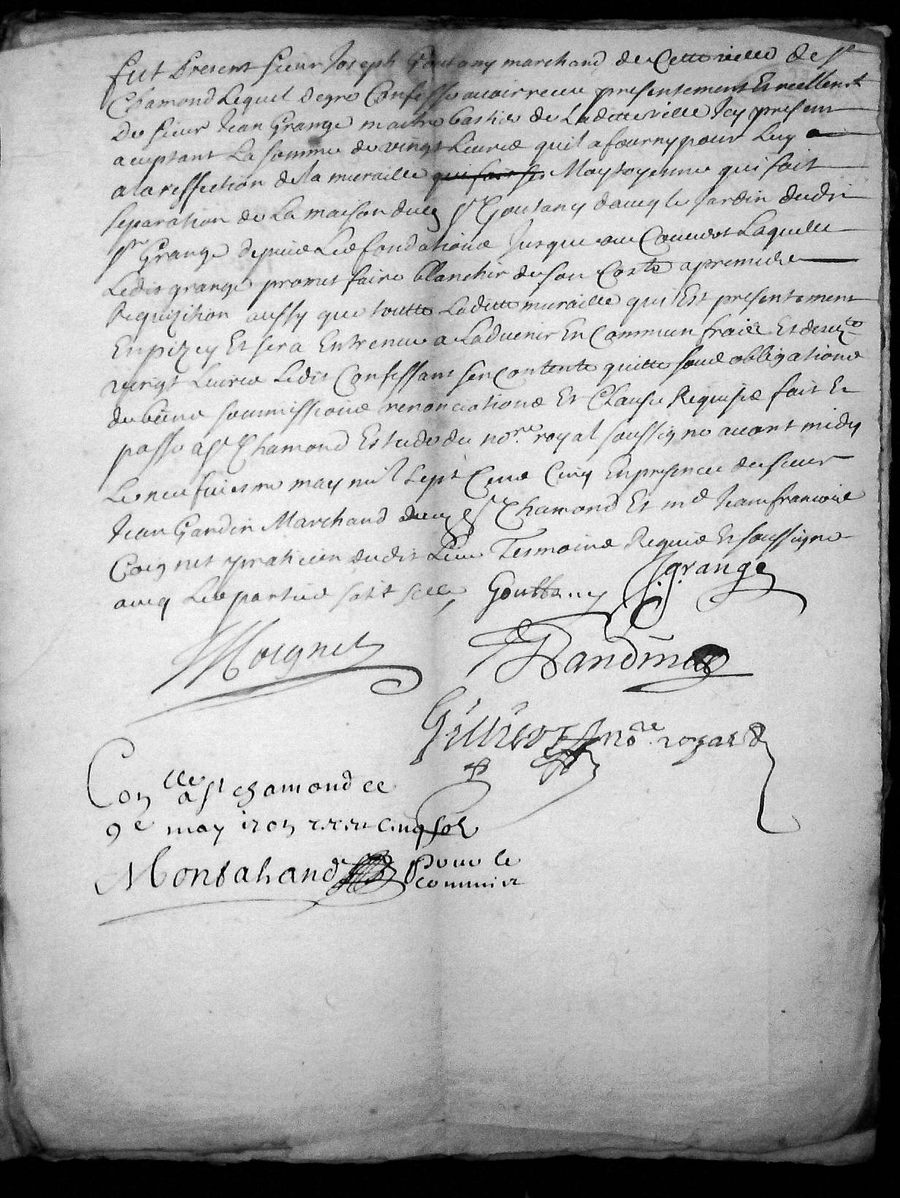 Fut Present sieur Joseph Goutany marchand de Cette ville de St
Chamond Lequel de gre Confesse avoir receu presentement Et reellemt
De sieur Jean Grange maitre bastier de Ladite ville Icy present
aceptant La somme de vingt Livres quil a fourny pour Luy a
a la reffection de la muraille que fait se Maytoyenne qui fait
separation de La maison dud Sr Goutany d'avec le Jardin dudit
Sr Grange depuis Les fondations Jusque au Couvert Laquelle
Ledit grange promet faire blanchir de son Costé a premiere
Requisition aussy que toutte Laditte muraille qui Est presentement
En pizey Et sera Entrenue a Ladvenir En Commun fraix Et de
vingt Livres Ledit Confessant sen contente quitte soub obligations
de biens soummissions renonciations Et Clauses Requises fait Et
passé a St Chamond Estude du nore royal soussigne avant midy
Le neufviesme may mil sept Cens Cinq En presence de sieur
Jean Gandin Marchand dud St Chamond Et me Jean françois
Coignet praticien dudit Lieu Tesmoins Requis Et soussigne
avec Les parties
Gouttany J. grange
Coignet
Gandin
nore royal
Conlle a St chamond ce
9e may 1705 cinq sols
Montahand pour le
commis